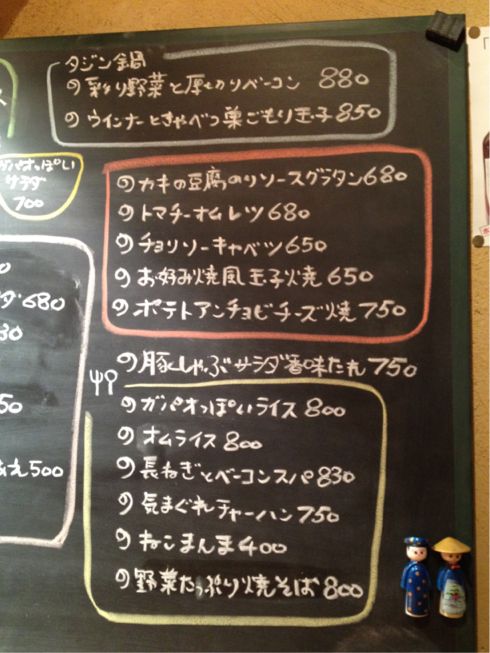 タジン鍋
の彩り野菜と厚切りベーコン 880
のウインナーときゃべつ巣ごもり玉子 850
パオっぽい
サラダ
700
のカキの豆腐のりソースグラタン 680
のトマチーオムレツ 680
のチョリソーキャベツ 650
のお好み焼風玉子焼 650
のポテトアンチョビチーズ焼 750
の豚しゃぶサラダ香味たれ 750
のガパオっぽいライス 800
のオムライス 800
の長ねぎとベーコンスパ 830
の気まぐれチャーハン 750
のねこまんま 400
の野菜たっぷり焼そば 800
0
ダ 680
30
50
500